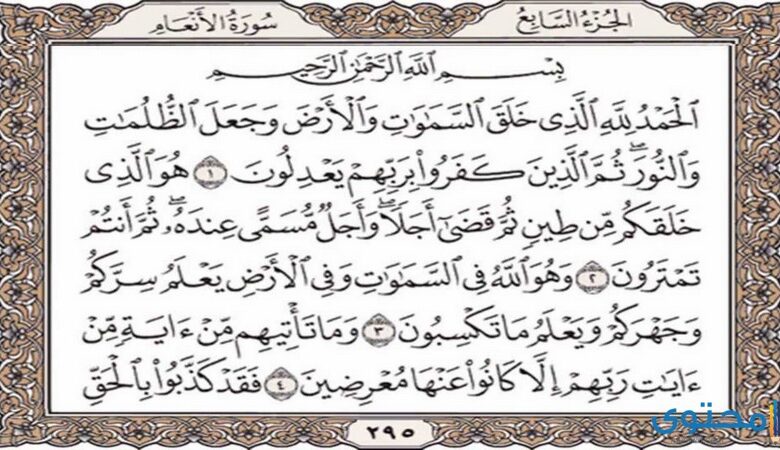 الجزء السابع
سورة الأنعام
بِسْمِ اللَّهِ الرَّحْمَٰنِ الرَّحِيمِ
الْحَمْدُ لِلَّهِ الَّذِي خَلَقَ السَّمَاوَاتِ وَالْأَرْضَ وَجَعَلَ الظُّلُمَاتِ
وَالنُّورَ ۖ ثُمَّ الَّذِينَ كَفَرُوا بِرَبِّهِمْ يَعْدِلُونَ ١ هُوَ الَّذِي
خَلَقَكُم مِّن طِينٍ ثُمَّ قَضَىٰ أَجَلًا ۖ وَأَجَلٌ مُّسَمًّى عِندَهُ ۖ ثُمَّ أَنتُمْ
تَمْتَرُونَ ٢ وَهُوَ اللَّهُ فِي السَّمَاوَاتِ وَفِي الْأَرْضِ يَعْلَمُ سِرَّكُمْ
وَجَهْرَكُمْ وَيَعْلَمُ مَا تَكْسِبُونَ ٣ وَمَا تَأْتِيهِم مِّنْ ءَايَةٍ مِّنْ
ءَايَاتِ رَبِّهِمْ إِلَّا كَانُوا عَنْهَا مُعْرِضِينَ ٤ فَقَدْ كَذَّبُوا بِالْحَقِّ
٢٩٥
محتوى